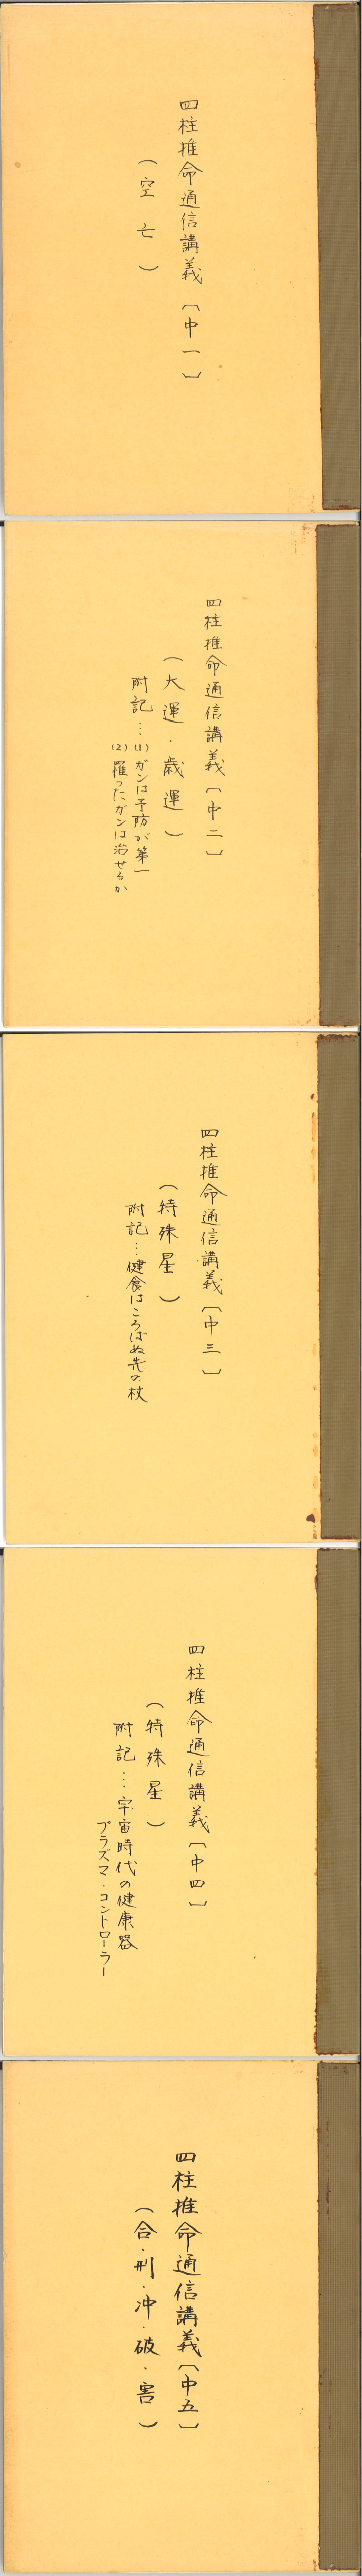 四柱推命通信講義〔中一〕
（空亡）
四柱推命通信講義〔中二〕
（大運・歳運）
附記…(1)ガンは予防が第一
(2)罹ったガンは治せるか
四柱推命通信講義〔中三〕
（特殊星）
附記…健食はころばぬ先の杖
四柱推命通信講義〔中四〕
（特殊星）
附記…宇宙時代の健康器
プラズマ・コントローラー
四柱推命通信講義〔中五〕
（合・刑・冲・破・害）